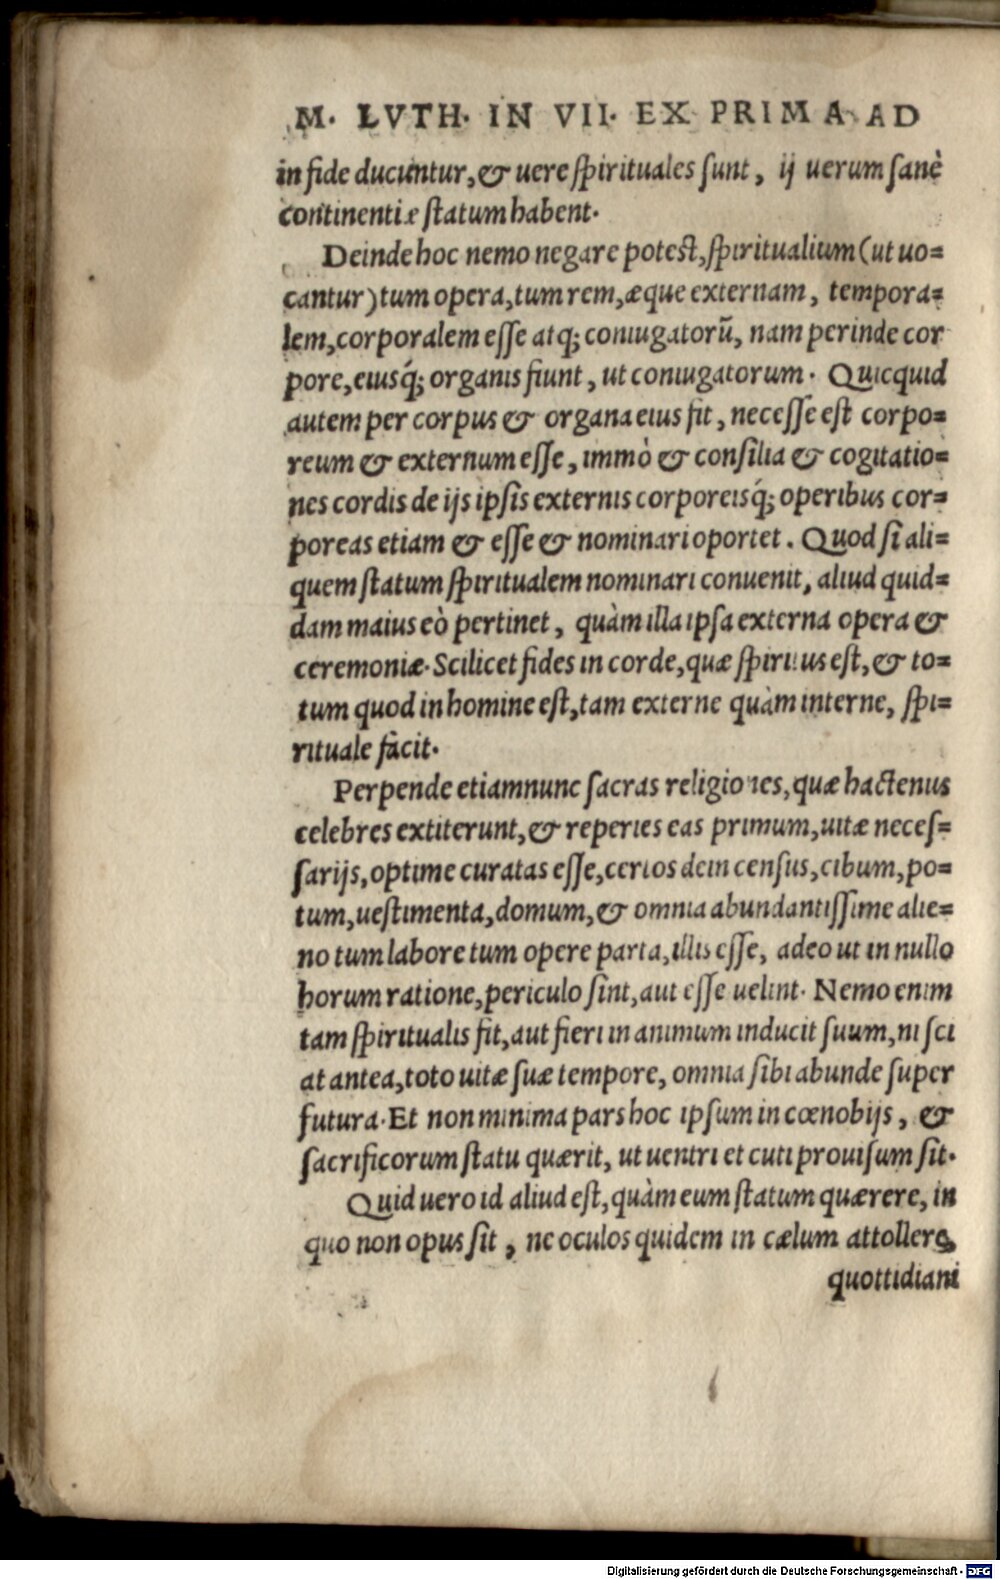 M. LVTH. IN VII. EX PRIMA AD
in fide ducuntur, & uere spirituales sunt, ij uerum sanè
continentiæ statum habent.
Deinde hoc nemo negare potest, spiritualium (ut uo=
cantur) tum opera, tum rem, æque externam, tempora=
lem, corporalem esse atq; coniugatorũ, nam perinde cor
pore, eiusq́; organis fiunt, ut coniugatorum. Quicquid
autem per corpus & organa eius fit, necesse est corpo=
reum & externum esse, immò & consilia & cogitatio=
nes cordis de ijs ipsis externis corporeisq́; operibus cor=
poreas etiam & esse & nominari oportet. Quod si ali=
quem statum spiritualem nominari conuenit, aliud quid=
dam maius eò pertinet, quàm illa ipsa externa opera &
ceremoniæ. Scilicet fides in corde, quæ spiritus est, & to=
tum quod in homine est, tam externe quàm interne, spi=
rituale facit.
Perpende etiamnunc sacras religiones, quæ hactenus
celebres extiterunt, & reperies eas primum, uitæ neces=
sarijs, optime curatas esse, certos dein census, cibum, po=
tum, uestimenta, domum, & omnia abundantissime alie=
no tum labore tum opere parta, illis esse, adeo ut in nullo
horum ratione, periculo sint, aut esse uelint. Nemo enim
tam spiritualis fit, aut fieri in animum inducit suum, ni sci
at antea, toto uitæ suæ tempore, omnia sibi abunde super
futura. Et non minima pars hoc ipsum in cœnobijs, &
sacrificorum statu quærit, ut uentri et cuti prouisum sit.
Quid uero id aliud est, quàm eum statum quærere, in
quo non opus sit, ne oculos quidem in cælum attollere,
quottidiani
Digitalisierung gefördert durch die Deutsche Forschungsgemeinschaft - DFG